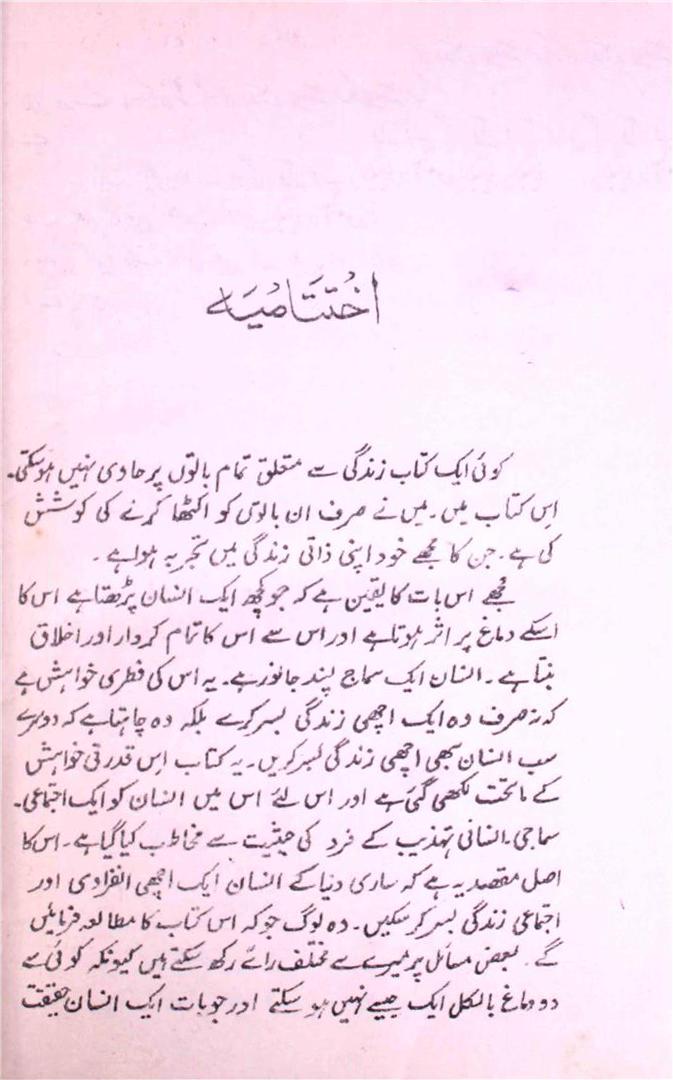 اختتامیہ
کوئی ایک کتاب زندگی سے متعلق تمام باتوں پر حاوی نہیں ہو سکتی۔
اِس کتاب میں۔ میں نے صرف ان باتوں کو اکٹھا کرنے کی کوشش
کی ہے۔ جن کا مجھے خود اپنی ذاتی زندگی میں تجربہ ہوا ہے۔
مجھے اس بات کا یقین ہے کہ جو کچھ ایک انسان پڑھتا ہے اس کا
اسکے دماغ پر اثر ہوتا ہے اور اس سے اس کا تمام کردار اور اخلاق
بنتا ہے۔ انسان ایک سماج پسند جانور ہے۔ یہ اس کی فطری خواہش ہے
کہ نہ صرف وہ ایک اچھی زندگی بسر کرے بلکہ وہ چاہتا ہے کہ دوسرے
سب انسان بھی اچھی زندگی بسر کریں۔ یہ کتاب اِس قدرتی خواہش
کے ماتحت لکھی گئی ہے اور اس لئے اس میں انسان کو ایک اجتماعی۔
سماجی۔ انسانی تہذیب کے فرد کی حیثیت سے مخاطب کیا گیا ہے۔ اس کا
اصل مقصد یہ ہے کہ ساری دنیا کے انسان ایک اچھی انفرادی اور
اجتماعی زندگی بسر کر سکیں۔ وہ لوگ جو کہ اس کتاب کا مطالعہ فرمائیں
گے۔ بعض مسائل پر میرے سے مختلف رائے رکھ سکتے ہیں کیونکہ کوئی سے
دو دماغ بالکل ایک جیسے نہیں ہو سکتے اور جو بات ایک انسان حقیقت